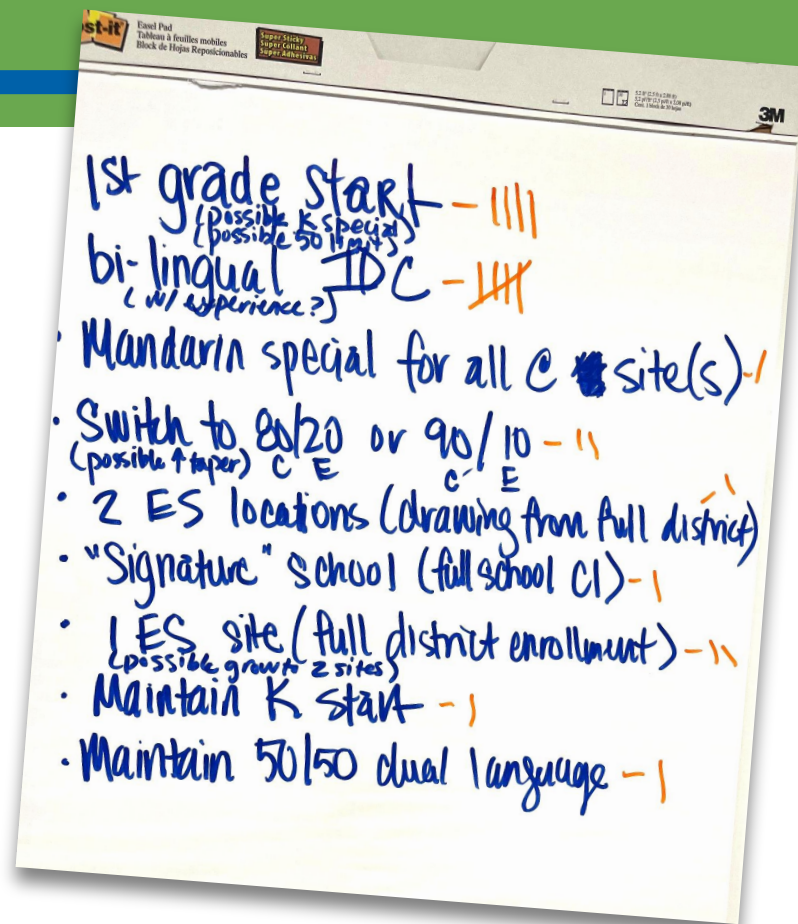 st-it
Easel Pad
Tableau à feuilles mobiles
Block de Hojas Reposicionables
Super Sticky
Super Collant
Super Adhesivas
3M
1st grade start - ||||
(possible K special)
(possible 50 limit)
bi-lingual IDC - 卌
(w/ experience?)
· Mandarin special for all @ site(s) - |
· Switch to 80/20 or 90/10 - ||
(possible ↑ taper) C E C E
· 2 ES locations (drawing from full district) - |
· "Signature" school (full school CI) - |
· 1 ES site (full district enrollment) - ||
(possible growth 2 sites)
· Maintain K start - |
· Maintain 50/50 dual language - |